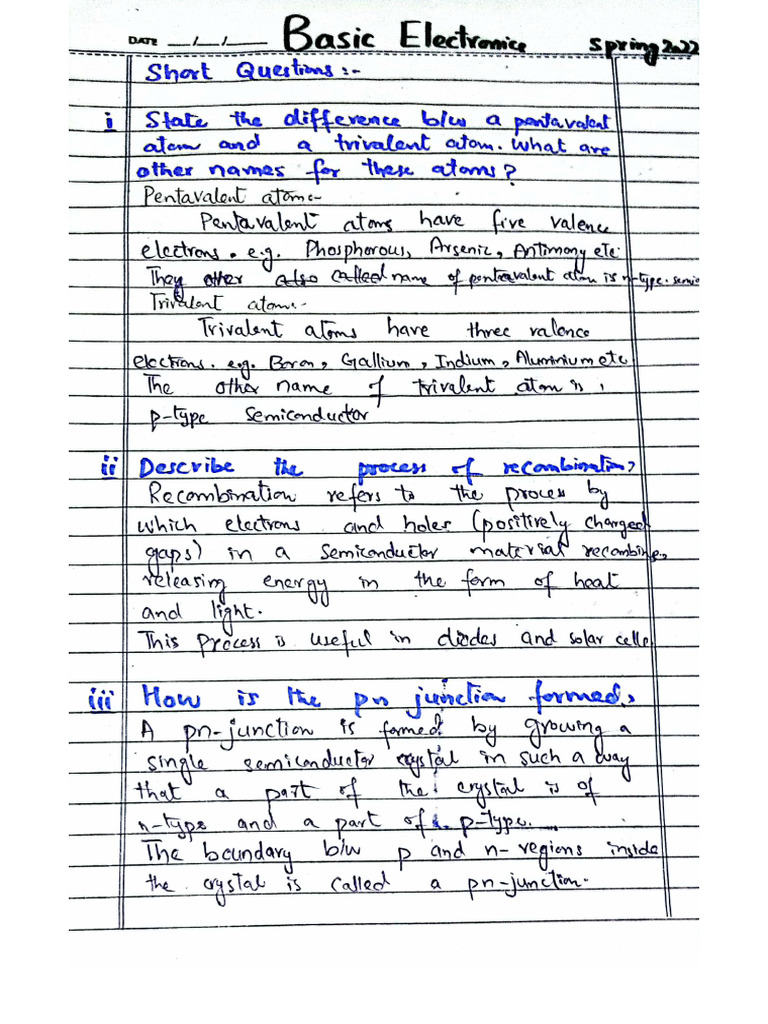 DATE __/__/____ Basic Electronics Spring 2022
Short Questions:-
i State the difference b/w a pentavalent
atom and a trivalent atom. What are
other names for these atoms?
Pentavalent atom:-
Pentavalent atoms have five valence
electrons. e.g. Phosphorous, Arsenic, Antimony etc.
They other also called name of pentavalent atom is n-type semic
Trivalent atom:-
Trivalent atoms have three valence
electrons. e.g. Boron, Gallium, Indium, Aluminium etc
The other name of trivalent atom is
p-type semiconductor
ii Describe the process of recombination?
Recombination refers to the process by
which electrons and holes (positively charged
gaps) in a semiconductor material recombine,
releasing energy in the form of heat
and light.
This process is useful in diodes and solar cells
iii How is the pn junction formed?
A pn-junction is formed by growing a
single semiconductor crystal in such a way
that a part of the crystal is of
n-type and a part of p-type.
The boundary b/w p and n-regions inside
the crystal is called a pn-junction.